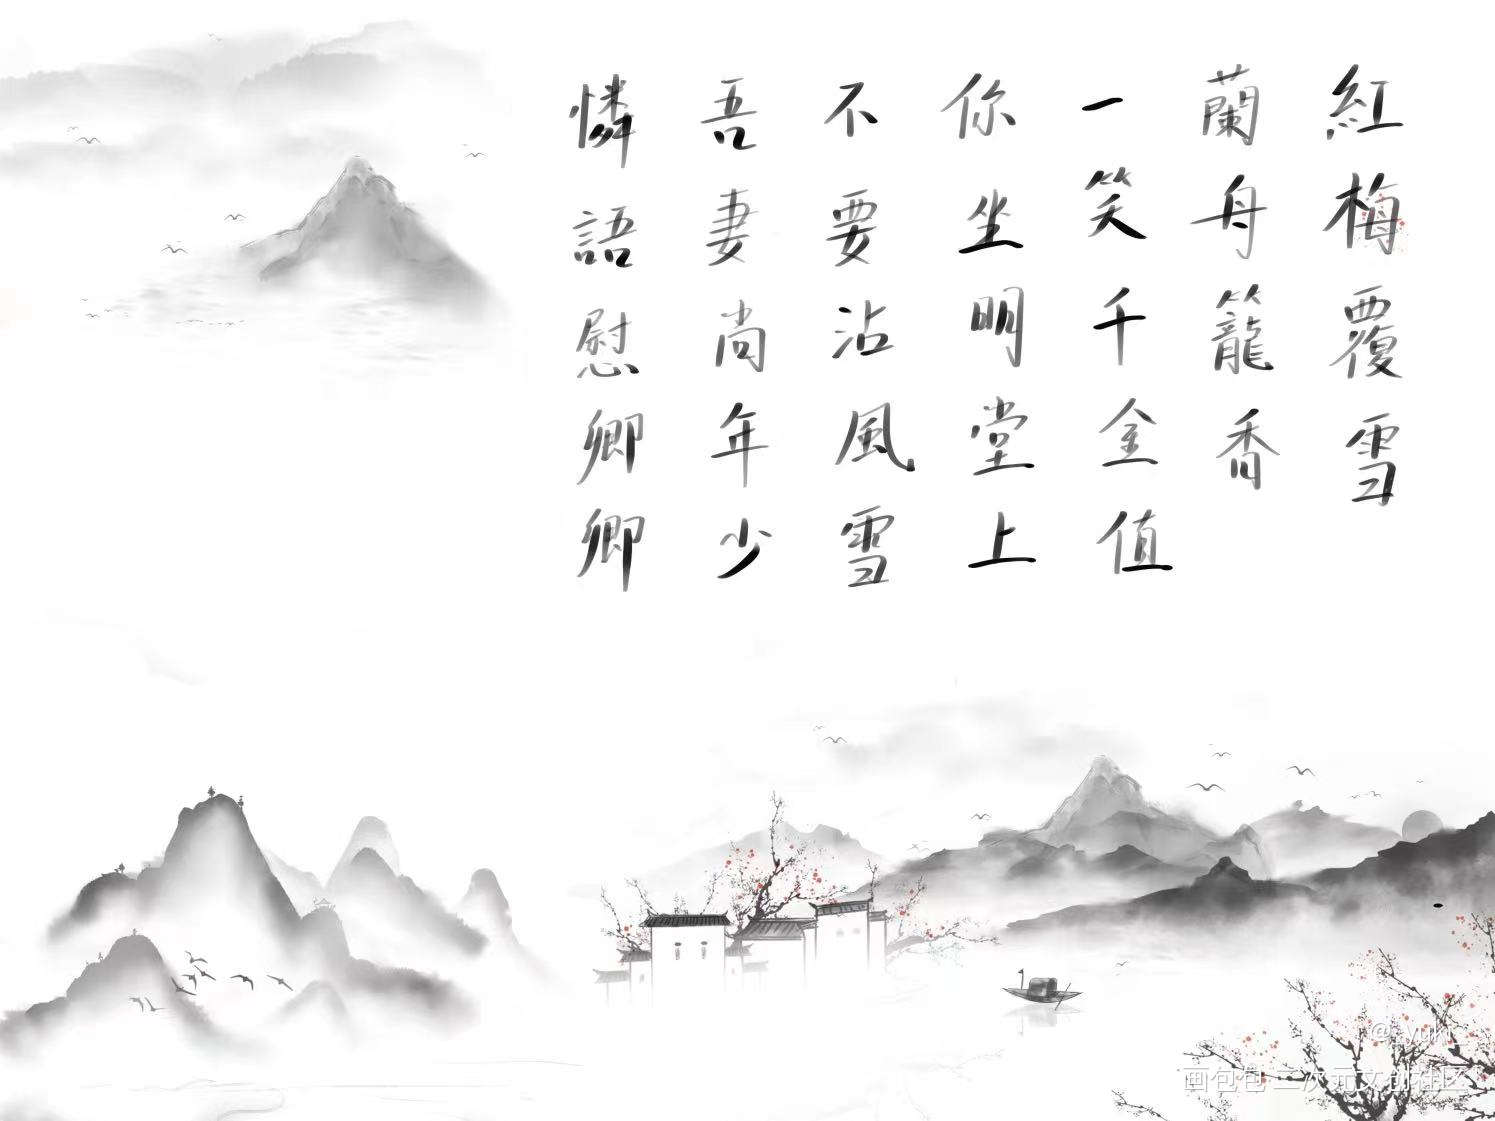 紅梅覆雪
蘭舟籠香
一笑千金值
你坐明堂上
不要沾風雪
吾妻尚年少
憐語慰卿卿
@_Yuki_
画包包 二次元文创社区